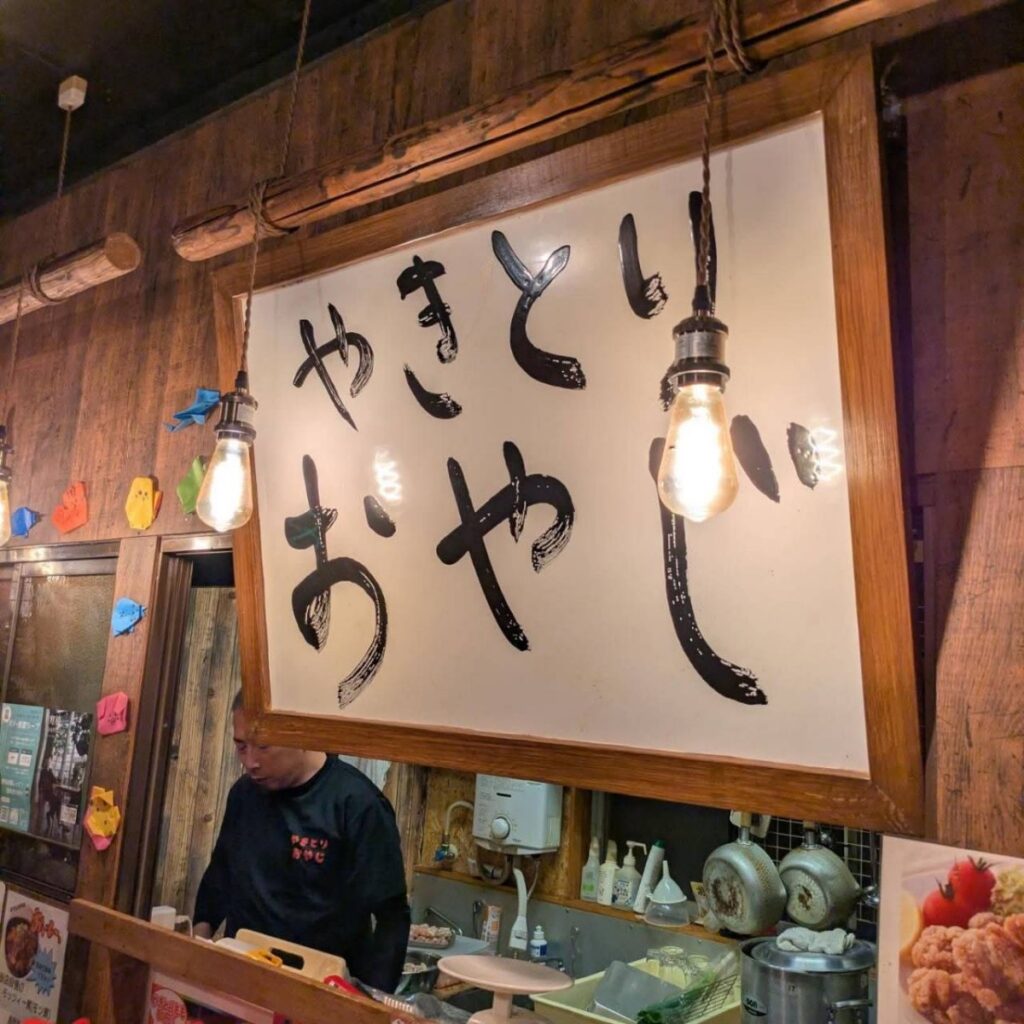 やきとり
おやじ
やきとり
おやじ